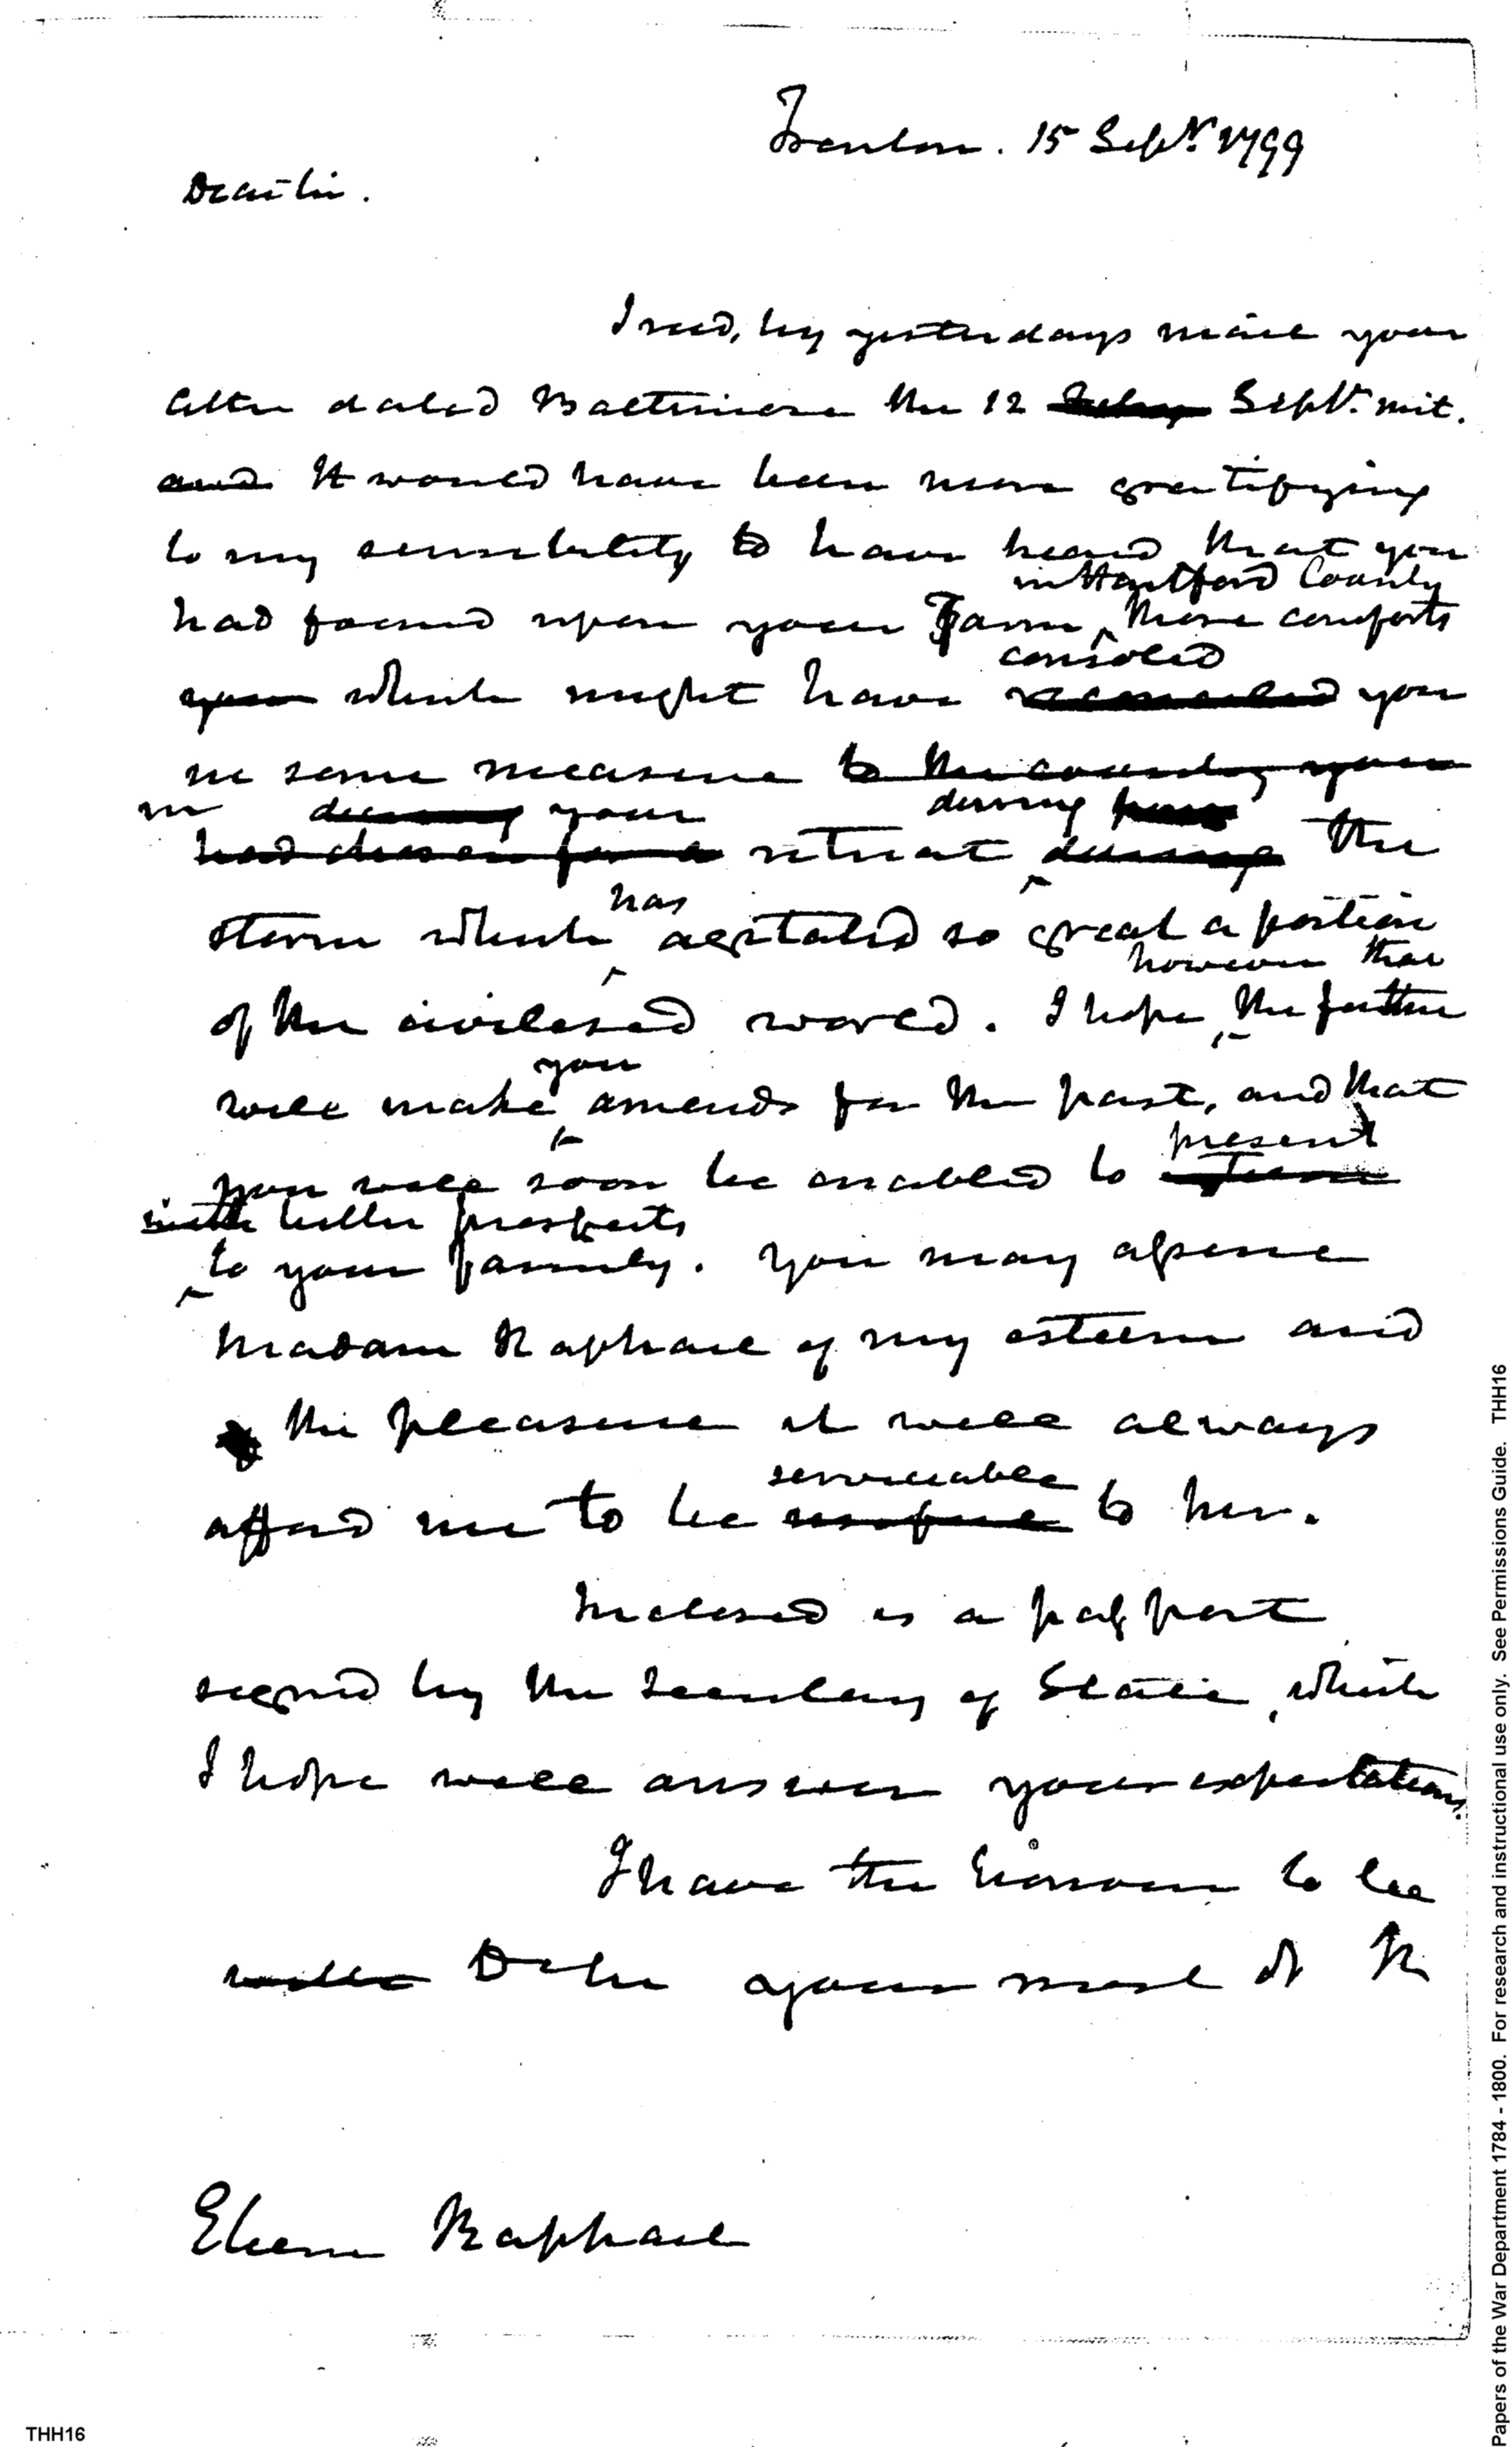 Trenton. 15 Sepr. 1799
Dear Sir.
I recd, by yesterdays mail your
letter dated Baltimore the 12 July Sepr. inst.
and It would have been more gratifying
to my sensibility to have heard that you
in Hartford County
had found upon your Farm, those comforts
consoled
your which might have reconciled you
in some measure to the country you
in during your during
had chosen for a retreat during the
has
storm which agitated so great a portion
however that
of the civilised world. I hope the further
you
will make amends for the past, and that
present
you will soon be enabled to
with better prospects
to your family. You may assure
Madam Raphael of my esteem and
the pleasure it will always
serviceable
afford me to be useful to her.
Inclosed is a passport
signed by the Secretary of State, which
I hope will answer your expectations.
I have the honour to be
with D Sir your most ob h
Etienne Raphael
THH16
Papers of the War Department 1784 - 1800. For research and instructional use only. See Permissions Guide. THH16